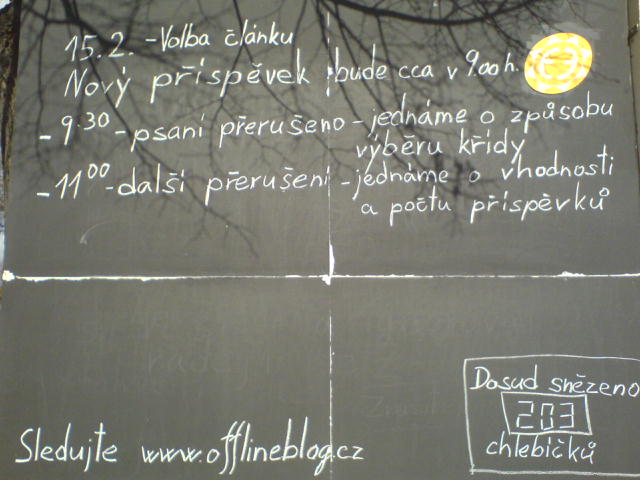 15.2. - Volba článku
Nový příspěvek bude cca v 9.00 h.
- 9.30 - psaní přerušeno - jednáme o způsobu
výběru křídy
- 11 00 - další přerušení - jednáme o vhodnosti
a počtu příspěvků
Dosud snězeno
203
chlebíčků
Sledujte www.offlineblog.cz